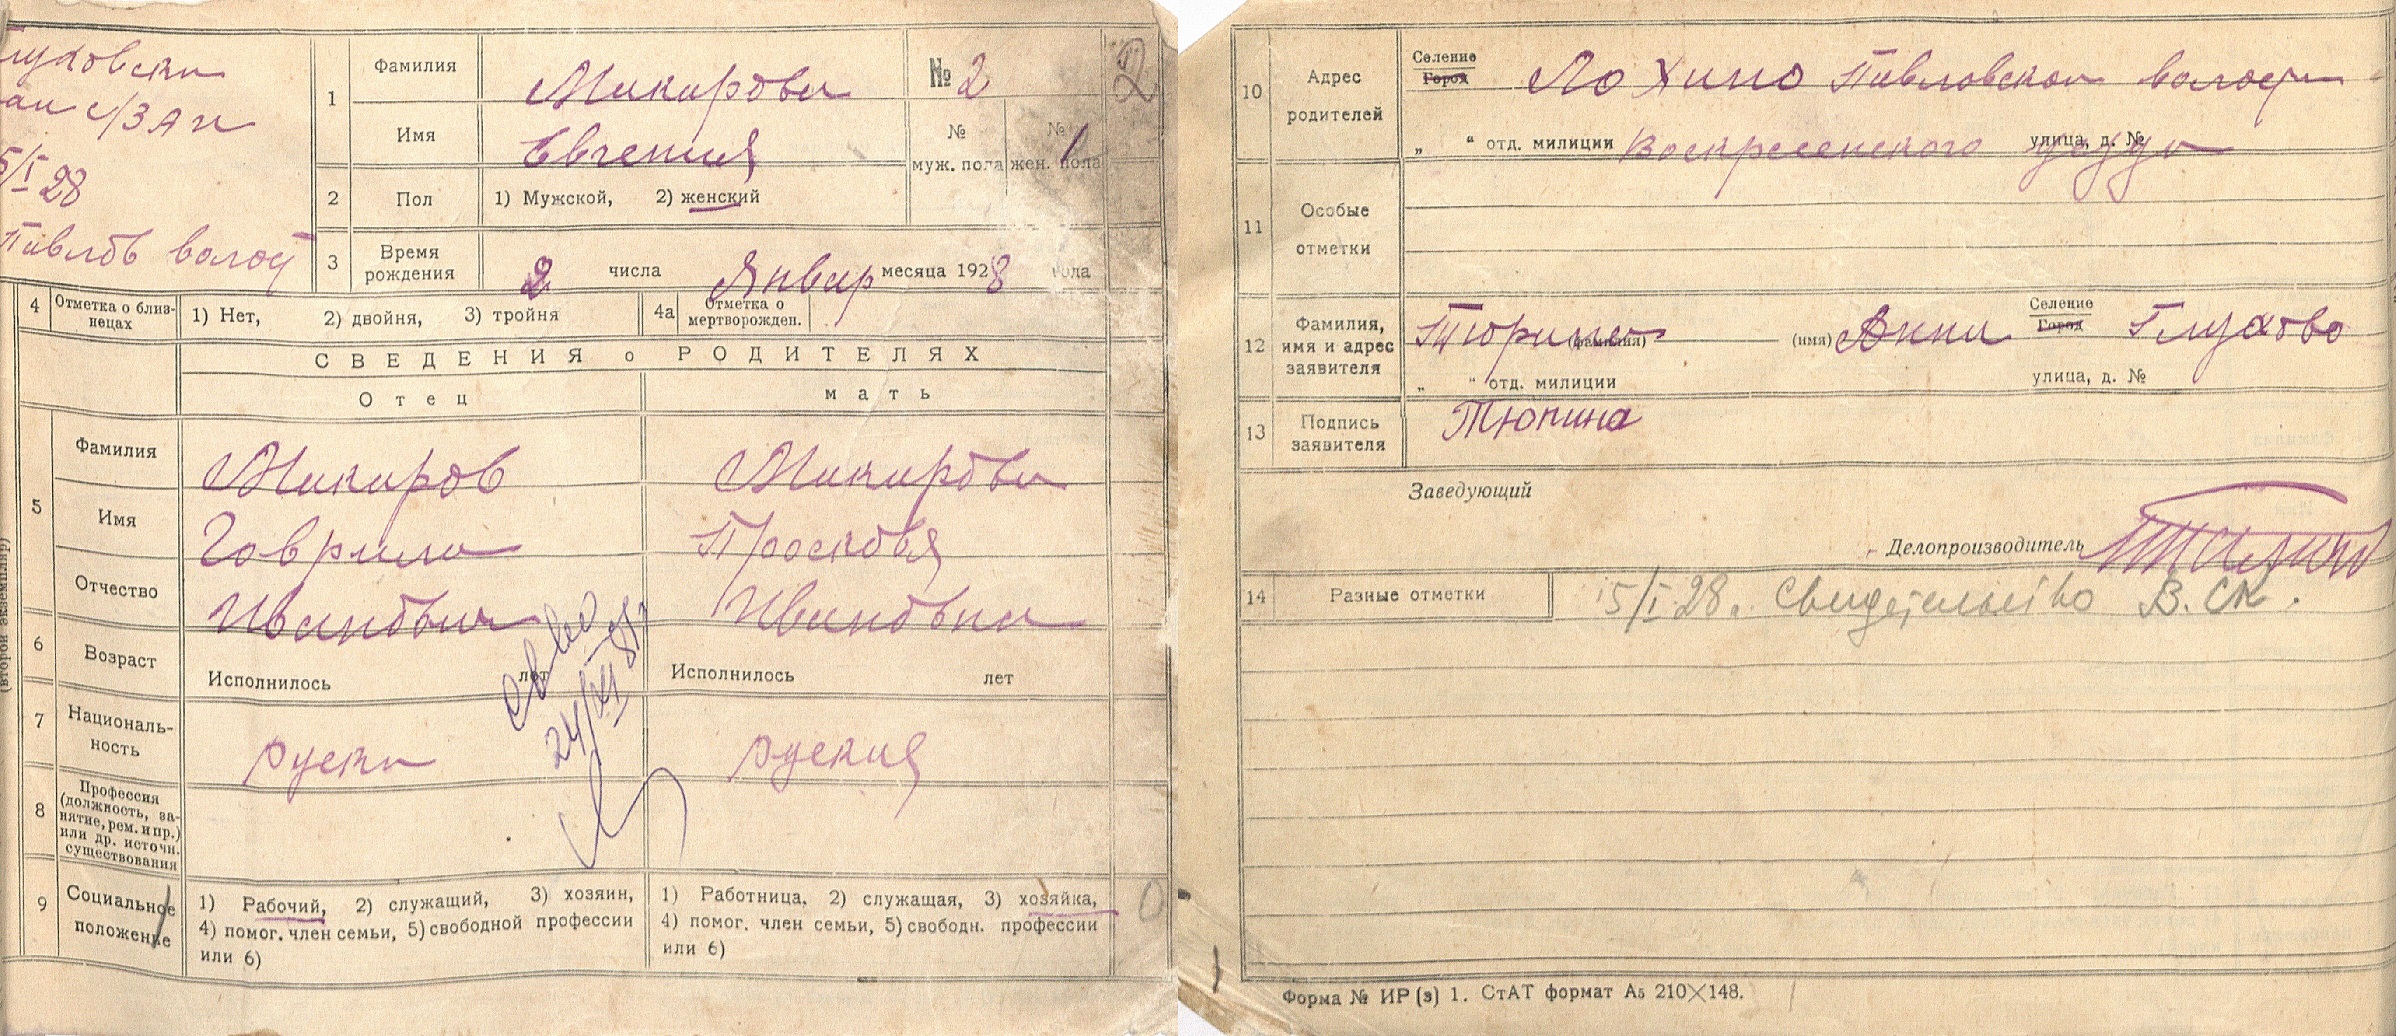 Глуховски
ан с/ЗАГ
5/I 28
Павлов волост
1
Фамилия
Макарова
№ 2
2
Имя
Евгения
№
муж. пола
№ 1
жен. пола
2
Пол
1) Мужской, 2) женский
3
Время
рождения
2 числа Январ месяца 1928 года
4
Отметка о близ-
нецах
1) Нет, 2) двойня, 3) тройня
4а
Отметка о
мертворожден.
СВЕДЕНИЯ о РОДИТЕЛЯХ
Отец
мать
5
Фамилия
Макаров
Макарова
Имя
Гаврила
Просковья
Отчество
Иванович
Ивановна
6
Возраст
Исполнилось лет
Исполнилось лет
7
Националь-
ность
руски
руския
св-во
8
Профессия
(должность, за-
нятие, рем. и пр.)
или др. источн.
существования
9
Социальное
положение
1) Рабочий, 2) служащий, 3) хозяин,
4) помог. член семьи, 5) свободной профессии
или 6)
1) Работница, 2) служащая, 3) хозяйка,
4) помог. член семьи, 5) свободн. профессии
или 6)
0
(второй экземпляр)
10
Адрес
родителей
Селение
Город
Лохино Павловской волости
„ “ отд. милиции Воскресенского уезда улица, д. №
11
Особые
отметки
12
Фамилия,
имя и адрес
заявителя
Тюрина (фамилия) (имя) Анна Селение
Город
Глухово
„ “ отд. милиции улица, д. №
13
Подпись
заявителя
Тюпина
Заведующий
Делопроизводитель
14
Разные отметки
5/I 28. Свидетельство В. СК.
Форма № ИР (з) 1. СтАТ формат А5 210×148.